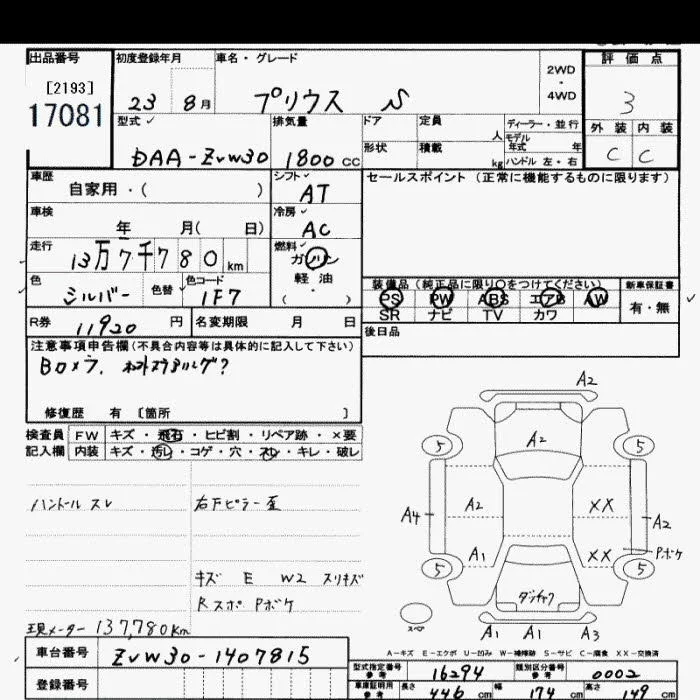 出品番号 初度登録年月 車名・グレード 評価点
[2193]
17081 23 8月 プリウス S 2WD・4WD 3
型式 排気量 ドア 定員 人 ディーラー・並行 モデル年式 年 外装 内装
DAA-ZVW30 1800CC 形状 積載 kg ハンドル 左・右 C C
車歴 自家用・( ) シフト AT セールスポイント (正常に機能するものに限ります)
車検 年 月( 日) 冷房 AC
走行 13万7千780km 燃料 ガソリン 軽油 ・( )
色 シルバー 色替 色コード 1F7
装備品(純正品に限り○をつけてください) 新車保証書
PS PW ABS エアB AW 有・無
SR ナビ TV カワ
R券 11920円 名変期限 月 日 後日品
注意事項申告欄(不具合内容等は具体的に記入して下さい)
修復歴 有 〔箇所 〕
検査員 FW キズ・飛石・ヒビ割・リペア跡・×要
記入欄 内装 キズ・汚レ・コゲ・穴・スレ・キレ・破レ
ハンドル スレ 右下ピラー歪
キズ E W2 スリキズ
Rスポ Pボケ
現メーター 137,780Km
A2
5 A2 5
A4 A2 XX A2
A1 XX Pボケ
5 5
スペア
A1 A1 A3
A-キズ E-エクボ U-凹み W-補修跡 S-サビ C-腐食 XX-交換済
車台番号 ZVW30-1407815
登録番号
型式指定番号 参考 16294 類別区分番号 参考 0002
車庫証明用 参考 長さ 446cm 幅 174cm 高さ 149cm